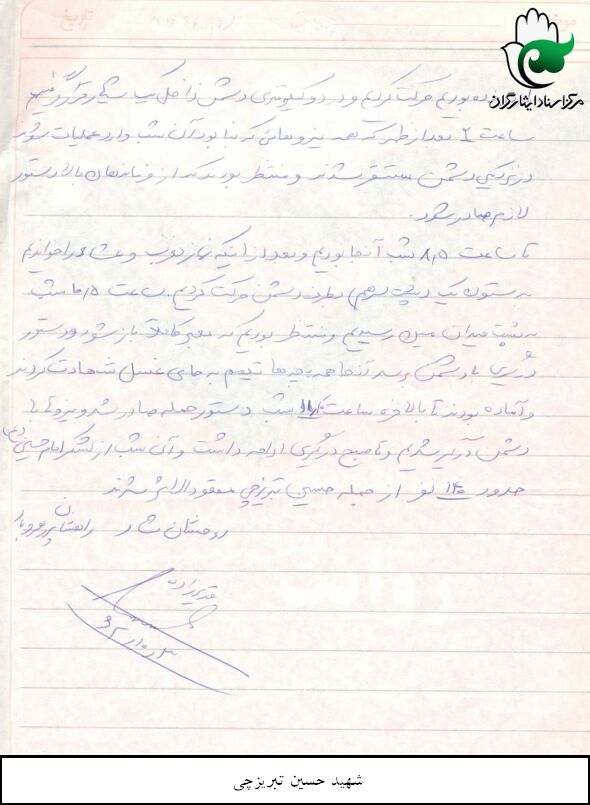 تاریخ
مرکز اسناد ایثارگران
بودیم حرکت کردیم و در دو کیلومتری دشمن داخل یک شیار قرار گرفتیم
ساعت ۲ بعد از ظهر که همه نیروهایی که بنا بود آن شب وارد عملیات شوند
در نزدیکی دشمن مستقر شدند و منتظر بودند که از فرماندهان بالا دستور
لازم صادر شود.
تا ساعت ۸٫۵ شب آنجا بودیم و بعد از اینکه نماز مغرب و عشاء را خواندیم
به ستون یک بطرف دشمن حرکت کردیم. ساعت ۱۰٫۵ شب
به پشت میدان مین رسیدیم و منتظر بودیم که معبر کاملاً باز شود و دستور
درگیری با دشمن برسد آنجا همه بچه‌ها تیمم به جای غسل شهادت کردند
و آماده بودند تا بالاخره ساعت شب دستور حمله صادر شد و نیروها با
دشمن درگیر شدیم و تا صبح درگیری ادامه داشت و آن شب از لشکر امام حسین (ع)
حدود ۱۴۰ نفر از جمله حسین تبریزچی مفقودالاثر شدند
روحشان شاد راهشان پر رهرو باد
شهید حسین تبریزچی